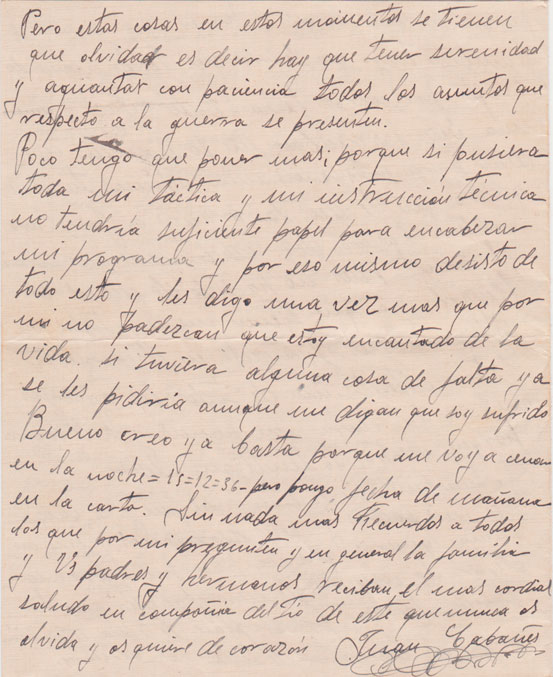 Pero estas cosas en estos momentos se tienen
que olvidar es decir hay que tener serenidad
y aguantar con paciencia todos los asuntos que
respecto a la guerra se presenten.
Poco tengo que poner mas; porque si pusiera
toda mi táctica y mi instrucción técnica
no tendría suficiente papel para encabezar
mi programa y por eso mismo desisto de
todo esto y les digo una vez mas que por
mi no padezcan que estoy encantado de la
vida. si tuviera alguna cosa de falta ya
se les pidiria aunque me digan que soy sufrido
Bueno creo ya basta porque me voy a cenar
en la noche = 15=12=36- pero pongo fecha de mañana
en la carta. Sin nada mas Recuerdos a todos
los que por mi pregunten y en general la familia
y Vs padres y hermanos reciban el mas cordial
saludo en compañia del tío de este que nunca os
olvida y os quiere de corazón Juan Cabañes